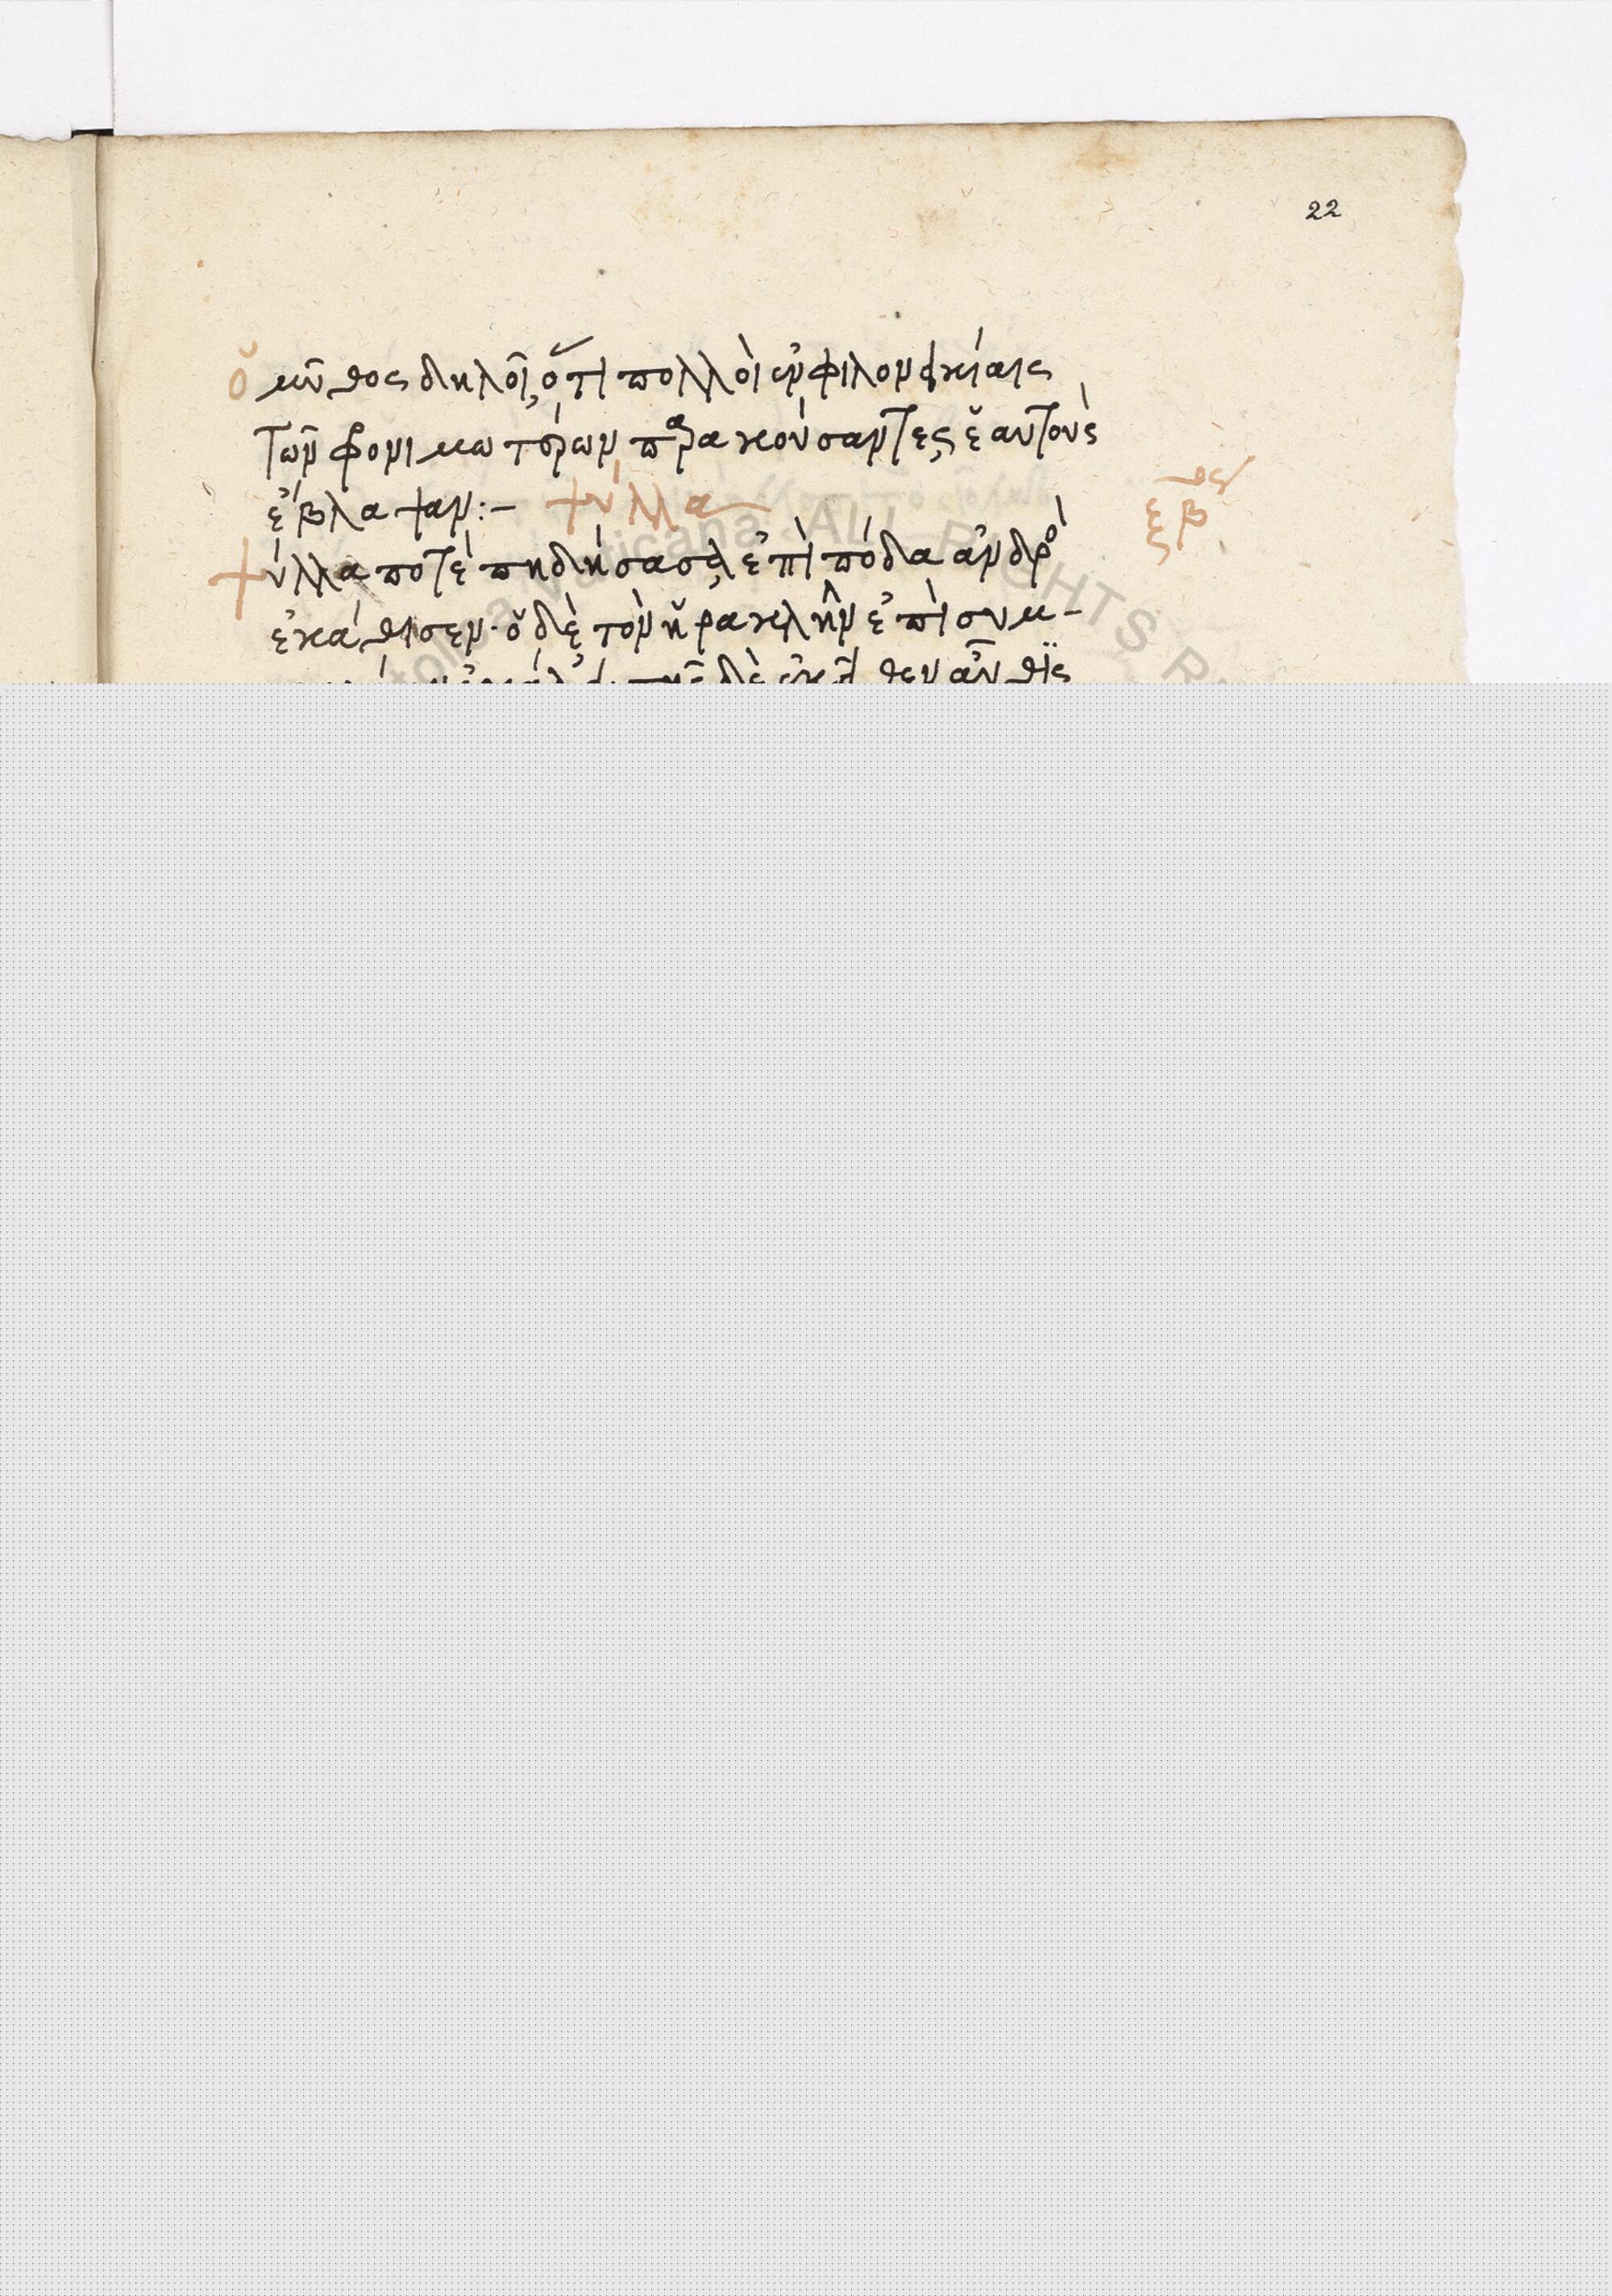 22
ὁ μῦθος δηλοῖ, ὅτι πολλοὶ ἐν φιλονεικίαις
τῶν φονιμωτέρων παρακούσαντες, ἑαυτοὺς
ἔβλαψαν :– ψύλλα
ξβ
ψύλλα ποτὲ πηδήσασα, ἐπὶ πόδα ἀνδρὸ
ἐκάθισεν· ὁ δὲ τὸν ἡρακλῆν ἐπὶ συμ-
δὲ ἐκεῖθεν αὖθις
ALL RIGHTS R